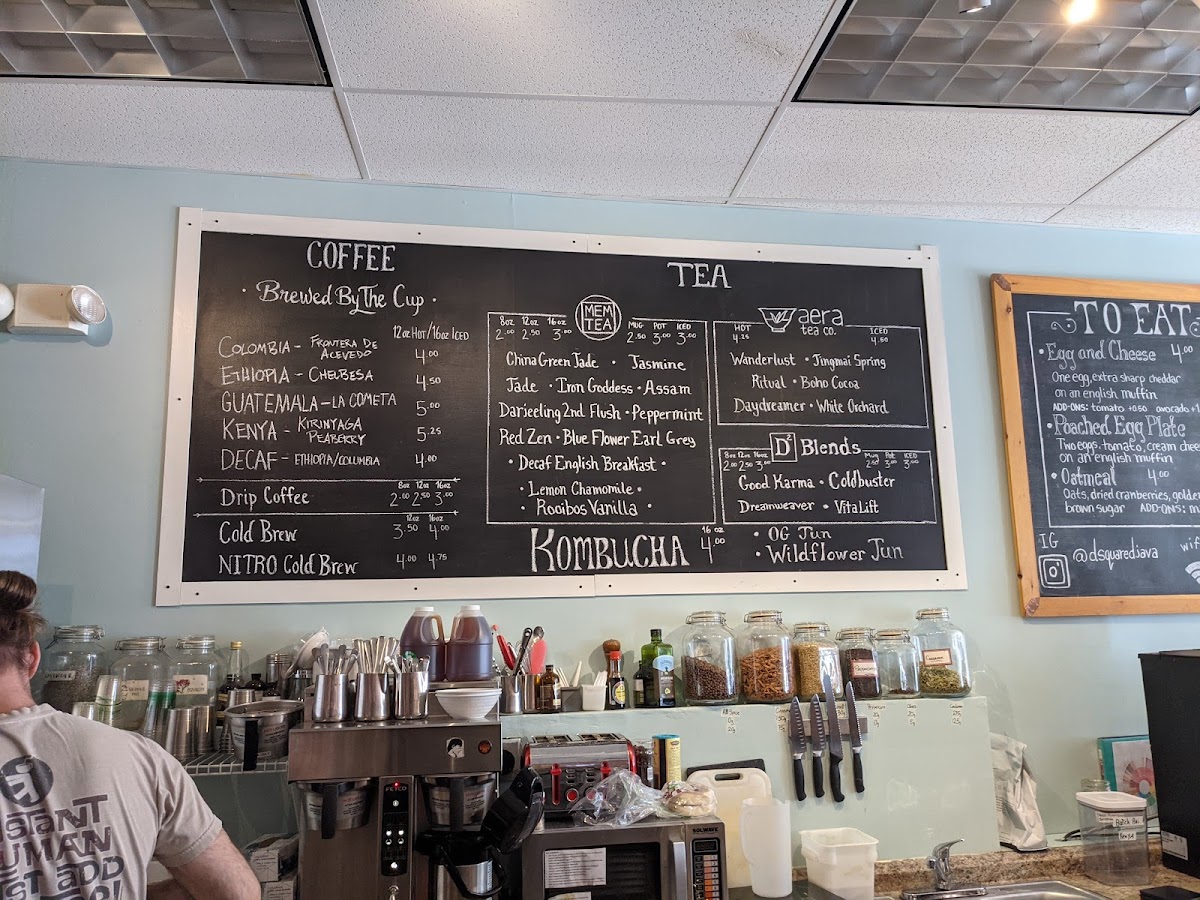 COFFEE
Brewed By The Cup
12oz HOT/16oz ICED
COLOMBIA - FRONTERA DE ACEVEDO 4.00
ETHIOPIA - CHELBESA 4.50
GUATEMALA - LA COMETA 5.00
KENYA - KIRINYAGA PEABERRY 5.25
DECAF - ETHIOPIA/COLUMBIA 4.00
8oz 12oz 16oz
Drip Coffee 2.00 2.50 3.00
12oz 16oz
Cold Brew 3.50 4.00
NITRO Cold Brew 4.00 4.75
TEA
8oz 12oz 16oz
2.00 2.50 3.00
MEM TEA
MUG POT ICED
2.50 3.00 3.00
China Green Jade • Jasmine
Jade • Iron Goddess • Assam
Darjeeling 2nd Flush • Peppermint
Red Zen • Blue Flower Earl Grey
• Decaf English Breakfast •
• Lemon Chamomile •
• Rooibos Vanilla •
HOT
4.25
aera
tea co.
ICED
4.50
Wanderlust • Jingmai Spring
Ritual • Boho Cocoa
Daydreamer • White Orchard
D² Blends
8oz 12oz 16oz
2.00 2.50 3.00
Mug Pot ICED
2.50 3.00 3.00
Good Karma • Coldbuster
Dreamweaver • VitaLift
KOMBUCHA 16 oz 4.00
• OG Jun
• Wildflower Jun
TO EAT
• Egg and Cheese 4.00
One egg, extra sharp cheddar
on an english muffin
ADD-ONS: tomato +0.50 avocado
• Poached Egg Plate
Two eggs, tomato, cream
on an english muffin
• Oatmeal 4.00
Oats, dried cranberries,
brown sugar ADD-ONS:
IG
@dsquaredjava
wif
FETCO
SOLWAVE
STANT
UMAN
ST ADD